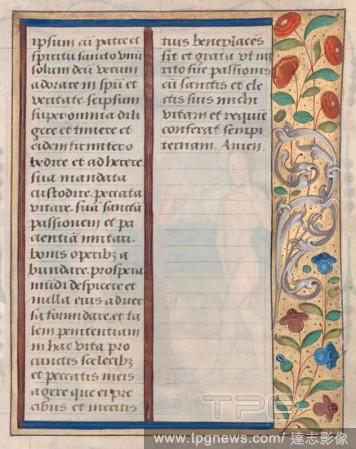 ipsum cū patre et
spiritu sancto vnū
solum deū verum
adorare in spū et
veritate. se ipsum
super omnia dili
gere et timere et
eidem firmiter o
bedire et adherere.
sua mandata
custodire. peccata
vitare. suā sanctā
passionem et pa
cientiā imitari.
bonis operibꝫ a
bundare. prospera
mūdi despicere et
nulla eius aduer
sa formidare. et ta
lem penitentiam
in hac vita pro
cunctis sceleribꝫ
et peccatis meis
agere que et pre
cibus et meritis
tuis beneplacēs
sit et grata vt me
rito sue passionis
cū sanctis et ele
ctis suis michi
vitam et requiē
conferat sempi
ternam. Amen.
TPG
www.tpgnews.com/ 達志影像